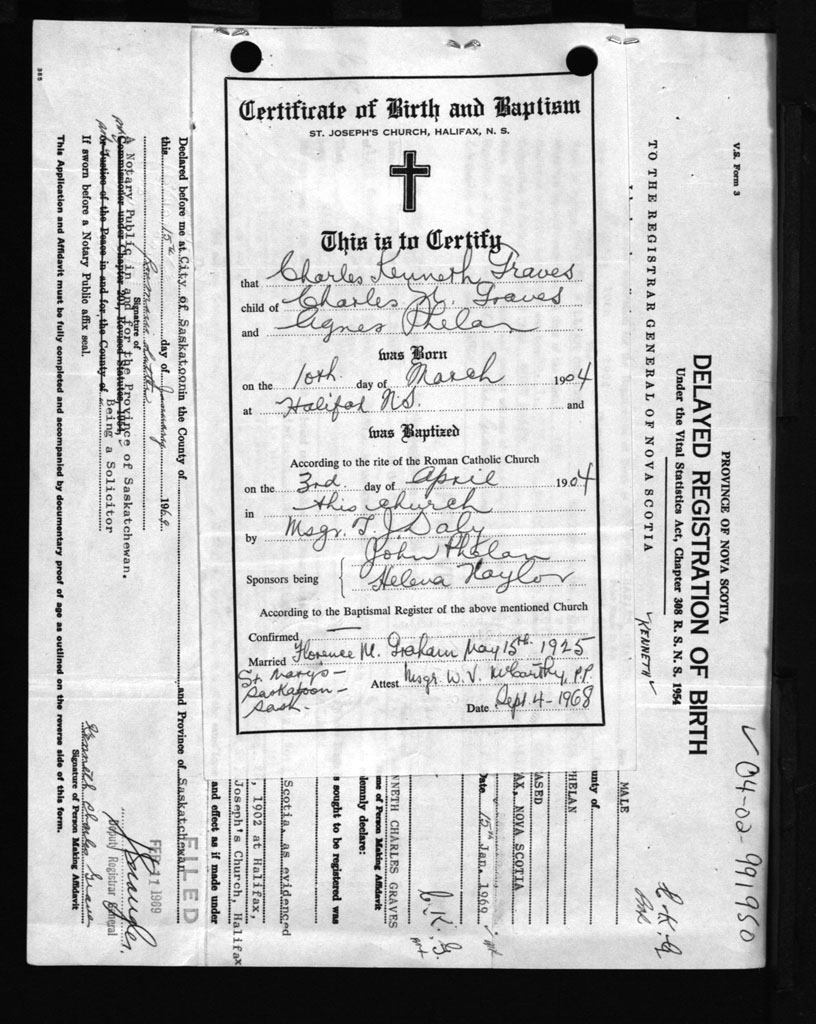 Certificate of Birth and Baptism
ST. JOSEPH'S CHURCH, HALIFAX, N. S.
This is to Certify
that Charles Kenneth Graves
child of Charles H. Graves
and Agnes Phelan
was Born
on the 10th. day of March 1904
at Halifax N.S. and
was Baptized
According to the rite of the Roman Catholic Church
on the 3rd. day of April 1904
in this church
by Msgr. T. J. Daly
John Phelan
Sponsors being { Helena Naylor
According to the Baptismal Register of the above mentioned Church
Confirmed
Married Florence M. Graham May 15th. 1925
St. Marys-
Saskatoon-
Sask.
Attest Msgr. W. V. McCarthy, P.P.
Date Sept. 4-1968
V.S. Form 3
PROVINCE OF NOVA SCOTIA
DELAYED REGISTRATION OF BIRTH
Under the Vital Statistics Act, Chapter 308 R. S. N. S. 1954
TO THE REGISTRAR GENERAL OF NOVA SCOTIA
KENNETH
04-02-991950
C.K.G
MALE
unty of
PHELAN
ASED
AX, NOVA SCOTIA
Date 15th Jan. 1969
C.K.G.
NNETH CHARLES GRAVES
me of Person Making Affidavit
lemnly declare:
s sought to be registered was
Scotia, as evidenced
, 1902 at Halifax,
Joseph's Church, Halifax
and effect as if made under
Declared before me at City of Saskatoon in the County of and Province of Saskatchewan
this 15th day of January 1969
Signature of
A Notary Public in and for the Province of Saskatchewan.
Commissioner under Chapter 201, Revised Statutes, 1954,
or Justice of the Peace in and for the County of Being a Solicitor
If sworn before a Notary Public affix seal.
This Application and Affidavit must be fully completed and accompanied by documentary proof of age as outlined on the reverse side of this form.
FILED
FEB 11 1969
Deputy Registrar General
Kenneth Charles Graves
Signature of Person Making Affidavit